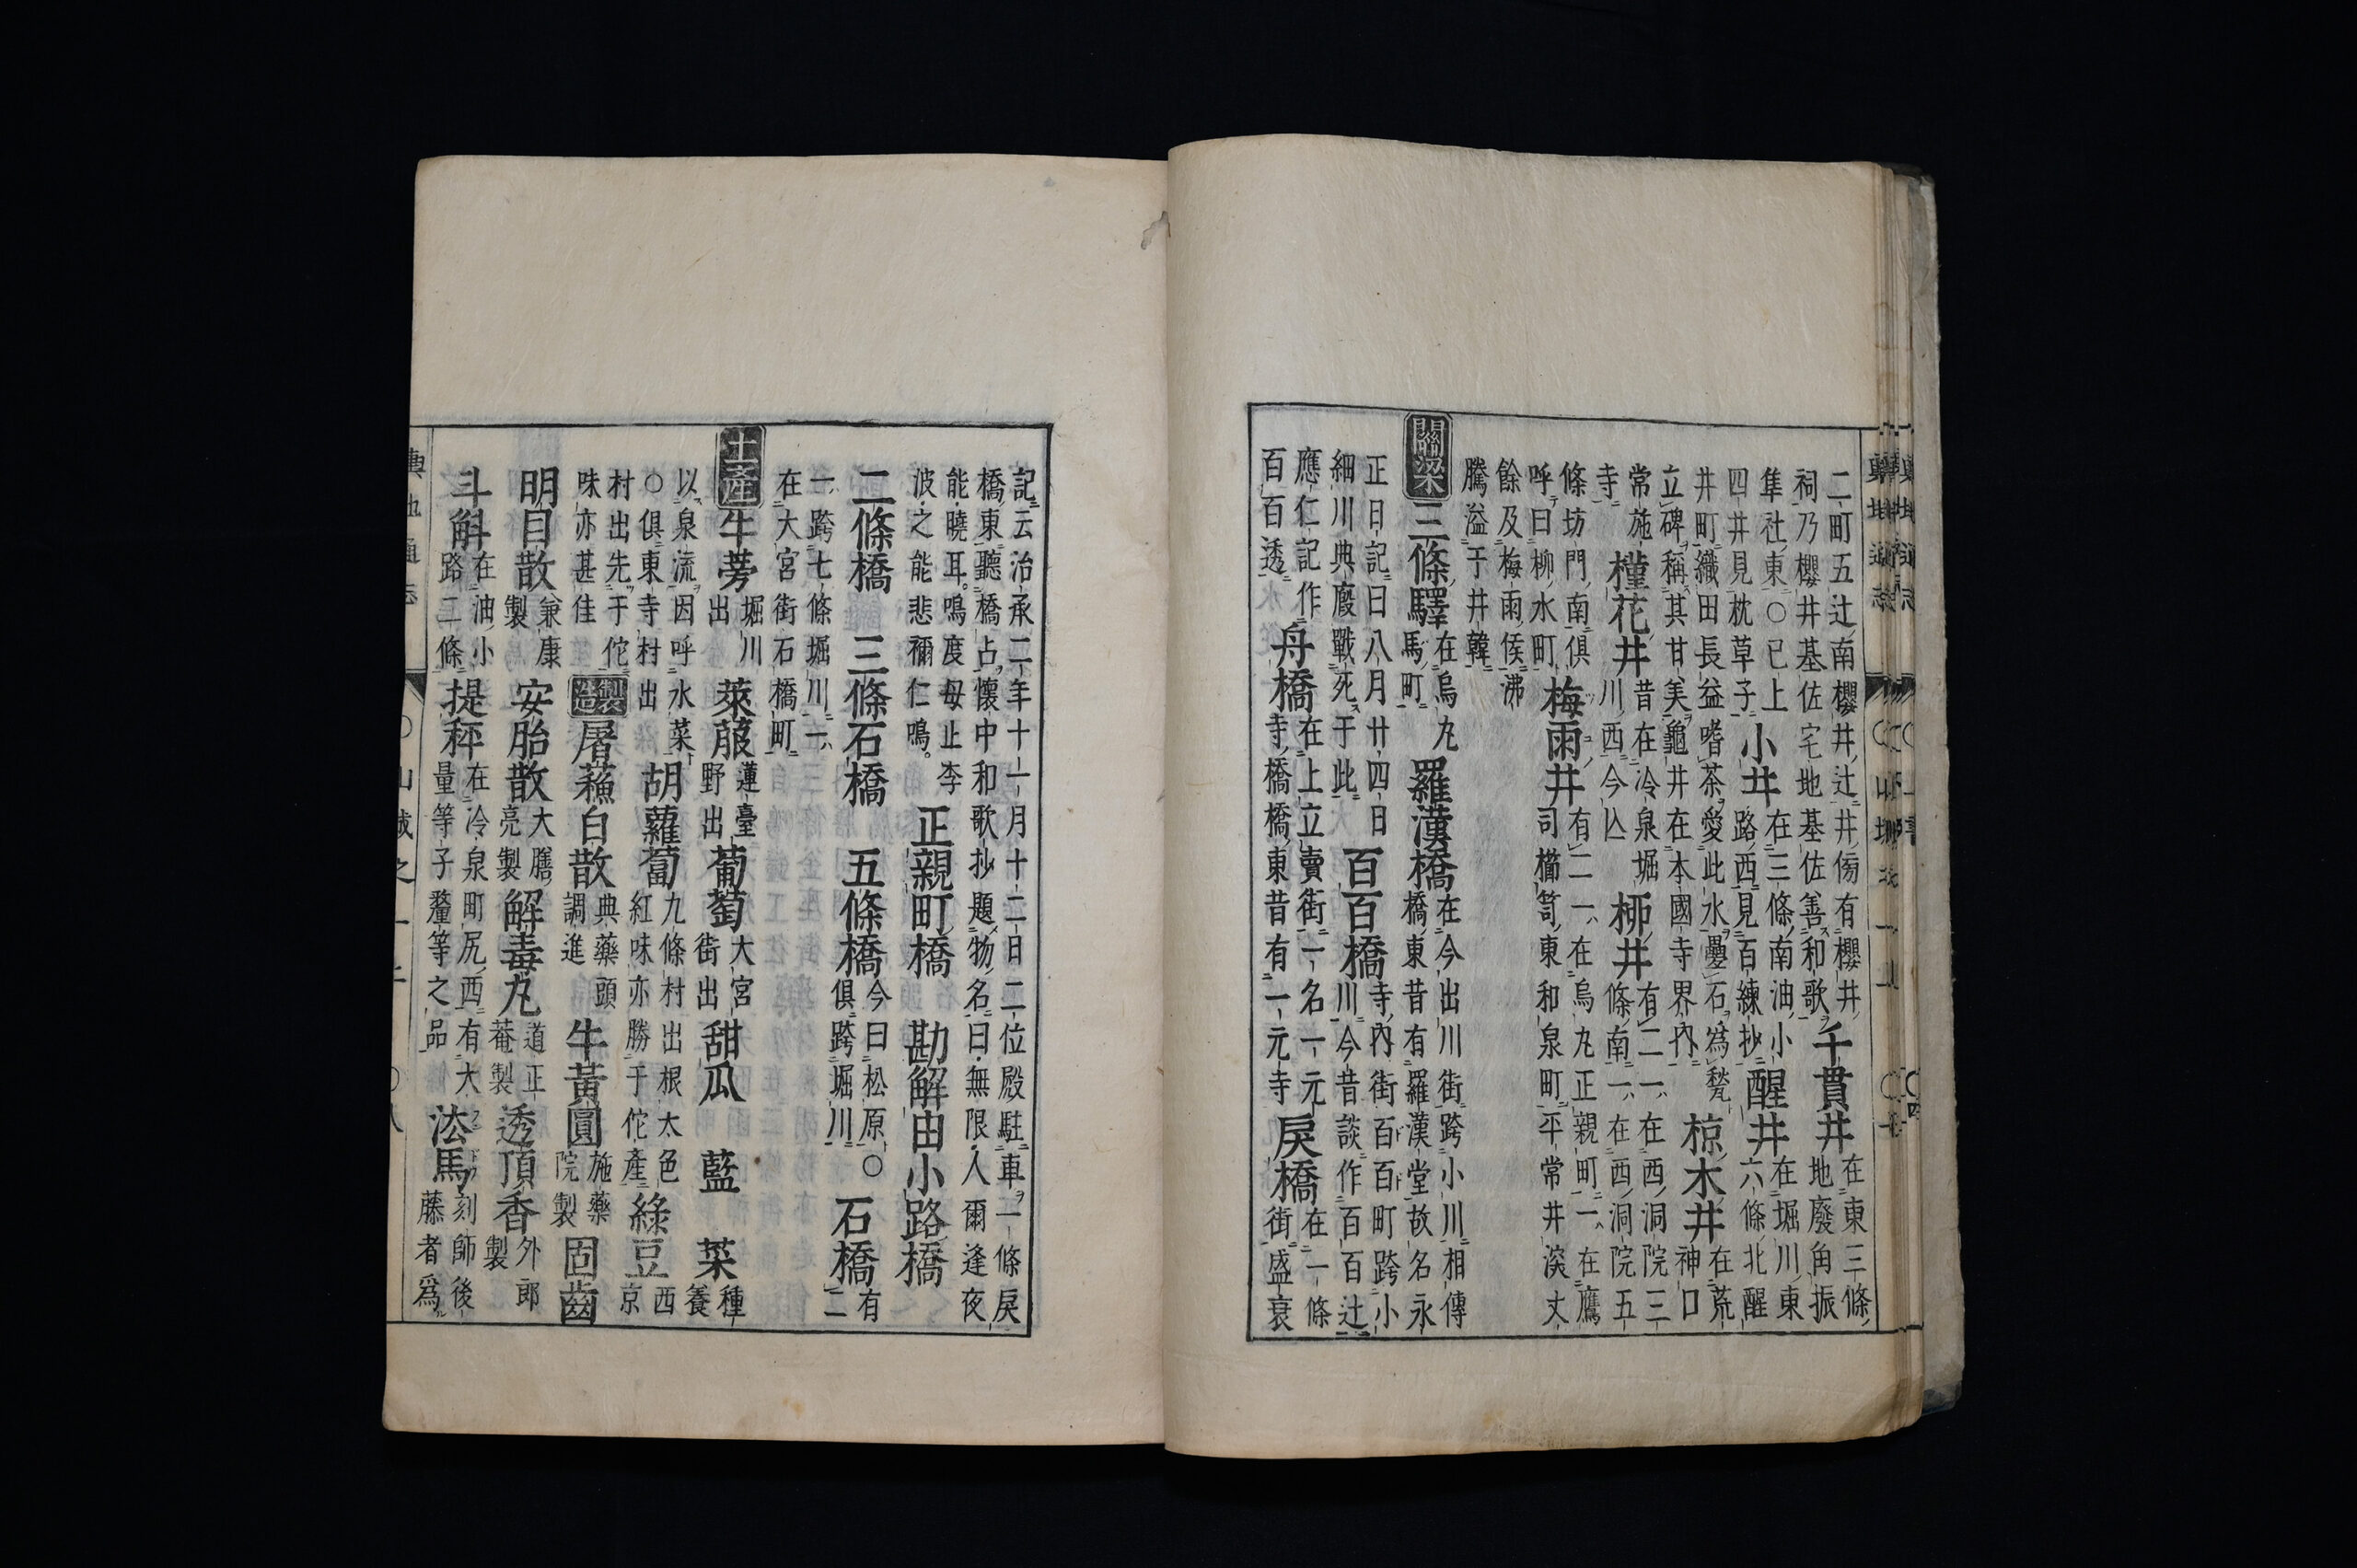 二町五辻南櫻井辻井傍有櫻井
祠乃櫻井基佐宅地基佐善和歌
千貫井
在東三條
地廢角振
隼社東○已上
四井見枕草子
小井
在三條南油小
路西見百練抄
醒井
在堀川東
六條北醒
井町織田長益嗜茶愛此水疊石爲甃
立碑稱其甘美龜井在本國寺界內
椋木井
在荒
神口
常施
寺
槿花井
昔在冷泉堀
川西今亾
柳井
有二一在西洞院三
條南一在西洞院五
條坊門南俱
呼曰柳水町
梅雨井
有二一在烏丸正親町一在鷹
司櫛笥東和泉町平常井深丈
餘及梅雨候沸
騰溢于井韓
關梁
三條驛
在烏丸
馬町
羅漢橋
在今出川街跨小川相傳
橋東昔有羅漢堂故名永
正日記曰八月廿四日
細川典廐戰死于此
百百橋
寺內街百百町跨小
川今昔談作百百辻
應仁記作
百百透
舟橋
在上立賣街一名一元
寺橋橋東昔有一元寺
戾橋
在一條
街盛衰
記云治承二年十一月十二日二位殿駐車一條戾
橋東聽橋占懷中和歌抄題物名曰無限人爾逢夜
能曉耳。鳴度毋止李
波之能悲禰仁鳴。
正親町橋 勘解由小路橋
二條橋 三條石橋 五條橋
今曰松原○
俱跨堀川
石橋
有
二
一跨七條堀川一
在大宮街石橋町
土產
牛蒡
堀川
出
萊菔
蓮臺
野出
葡萄
大宮
街出
甜瓜 藍 菜
種
養
以泉流因呼水菜
○俱東寺村出
胡蘿蔔
九條村出根太色
紅味亦勝于佗產
綠豆
西
京
村出先于佗
味亦甚佳
製造
屠蘇白散
典藥頭
調進
牛黃圓
施藥
院製
固齒
明目散
兼康
製
安胎散
大膳
亮製
解毒丸
道正
菴製
透頂香
外郎
製
斗斛
在油小
路二條
提秤
在冷泉町尻西有大
量等子釐等之品
馬
刻師後
藤者爲